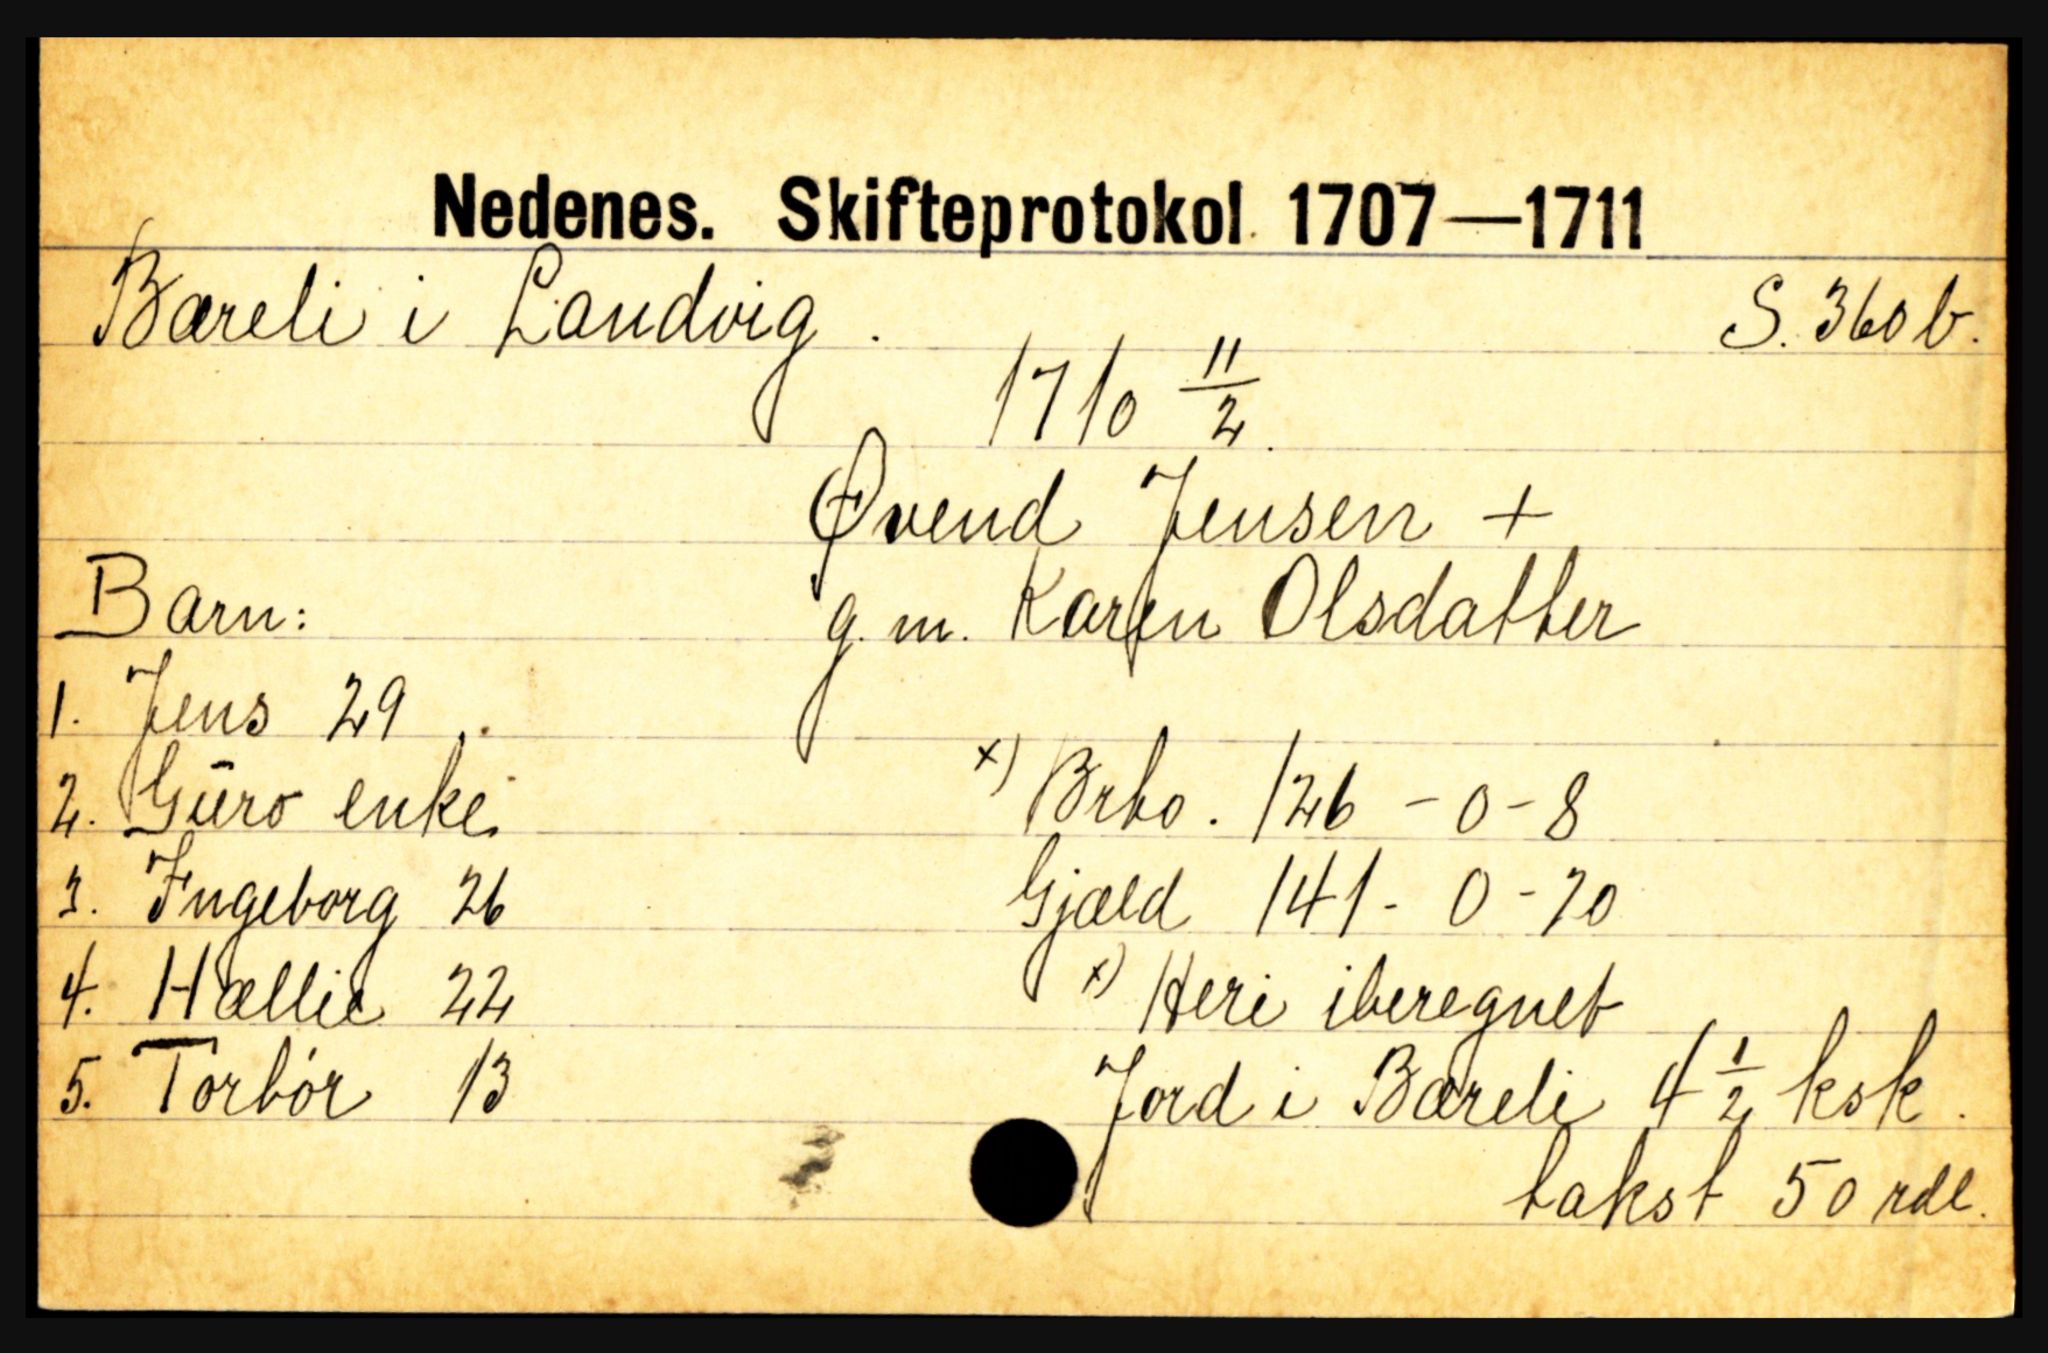 Nedenes. Skifteprotokol 1707—1711
Bæreli i Landvig. S. 360 b.
1710 11/2.
Øvend Jensen +
g. m. Karen Olsdatter
Barn:
1. Jens 29
2. Guro enke
3. Ingeborg 26
4. Hællie 22
5. Torbór 13
x) Brto. 126 - 0 - 8
Gjæld 141 - 0 - 20
x) Heri iberegnet
Jord i Bæreli 4 1/2 ksk.
takst 50 rdl.